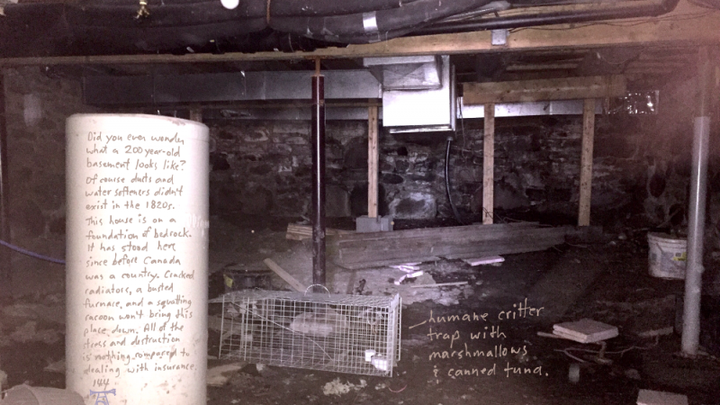 Did you ever wonder
what a 200 year-old
basement looks like?
Of course ducts and
water softeners didn't
exist in the 1820s.
This house is on a
foundation of bedrock.
It has stood here
since before Canada
was a country. Cracked
radiators, a busted
furnace, and a squatting
racoon won't bring this
place down. All of the
fires and destruction
is nothing compared to
dealing with insurance.
144
humane critter
trap with
marshmallows
& canned tuna.